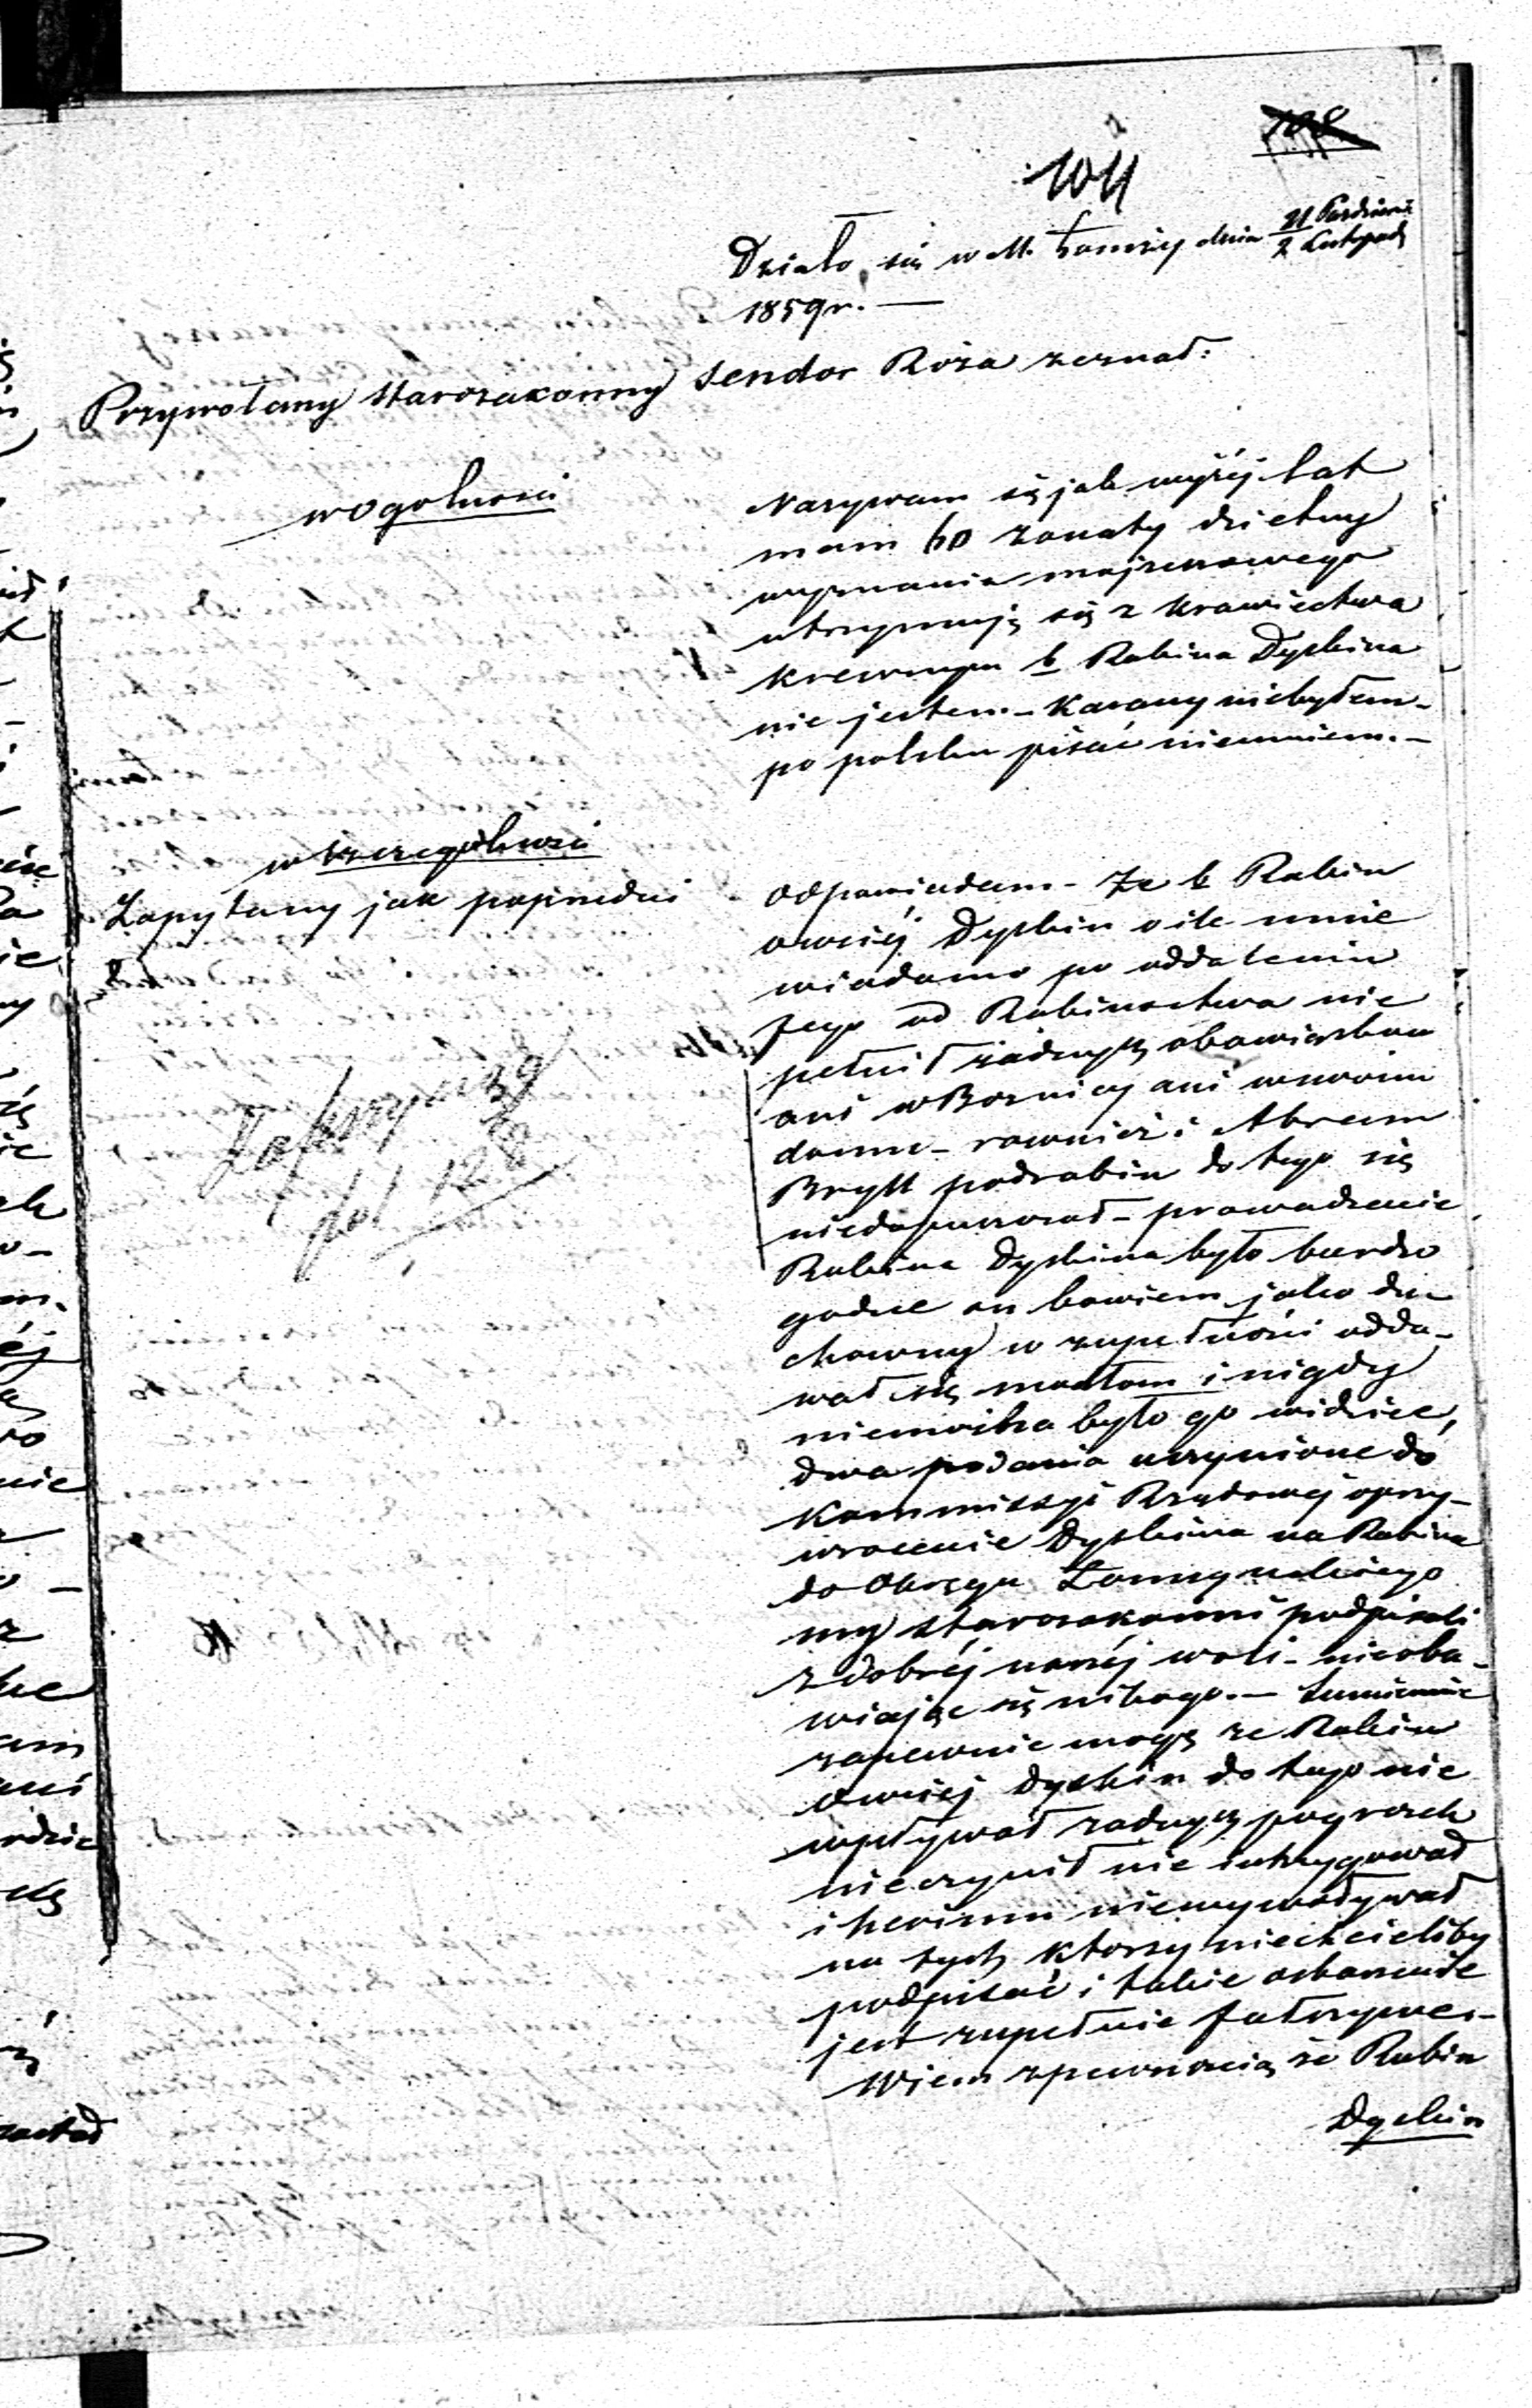 104
Działo się w M. Łomży dnia 21 Październi / 2 Listopad
1859 r. —
Przywołany starozakonny Sendor Roza zeznał:
w ogolnosci
Nazywam się jak wyżéj lat
mam 60 zonaty dzietny
wyznania mojżeszowego
utrzymuję się z krawiectwa
krewnym b Rabina Dyskina
nie jestem - karany niebyłem -
po polsku pisać nieumiem. -
w szczególnosci
Zapytany jak poprzedni
odpowiadam - Ze b Rabin
owciéj Dyskin o ile mnie
wiadomo po oddaleniu
jego od Rabinostwa nie
pełnił żadnych obowiązkow
ani w Boznicy ani w swoim
domu - rownież i Abram
Brysk podrabin do tego się
niedopuszczał - prowadzenie
Rabina Dyskina było bardzo
godne on bowiem jako du
chowny w zupełności odda-
wał się modłom i nigdy
niemożna było go widzieć,
dwa podania uczynione do
Kommissyi Rządowej o przy-
wrocenie Dyskina na Rabina
do Okręgu Łomżynskiego
my starozakonni podpisali
z dobréj naszéj woli - nieoba-
wiając się nikogo. - Sumiennie
zapewnic mogę ze Rabin
Owciej Dyskin do tego nie
wpływał zadnych pogrozek
nieczynił nie intrygował
i heremu niewywoływał
na tych ktorzy niechcieliby
podpisać i takie oskarzenie
jest zupełnie fałszywe. -
Wiem z pewnoscią że Rabin
Dyskin